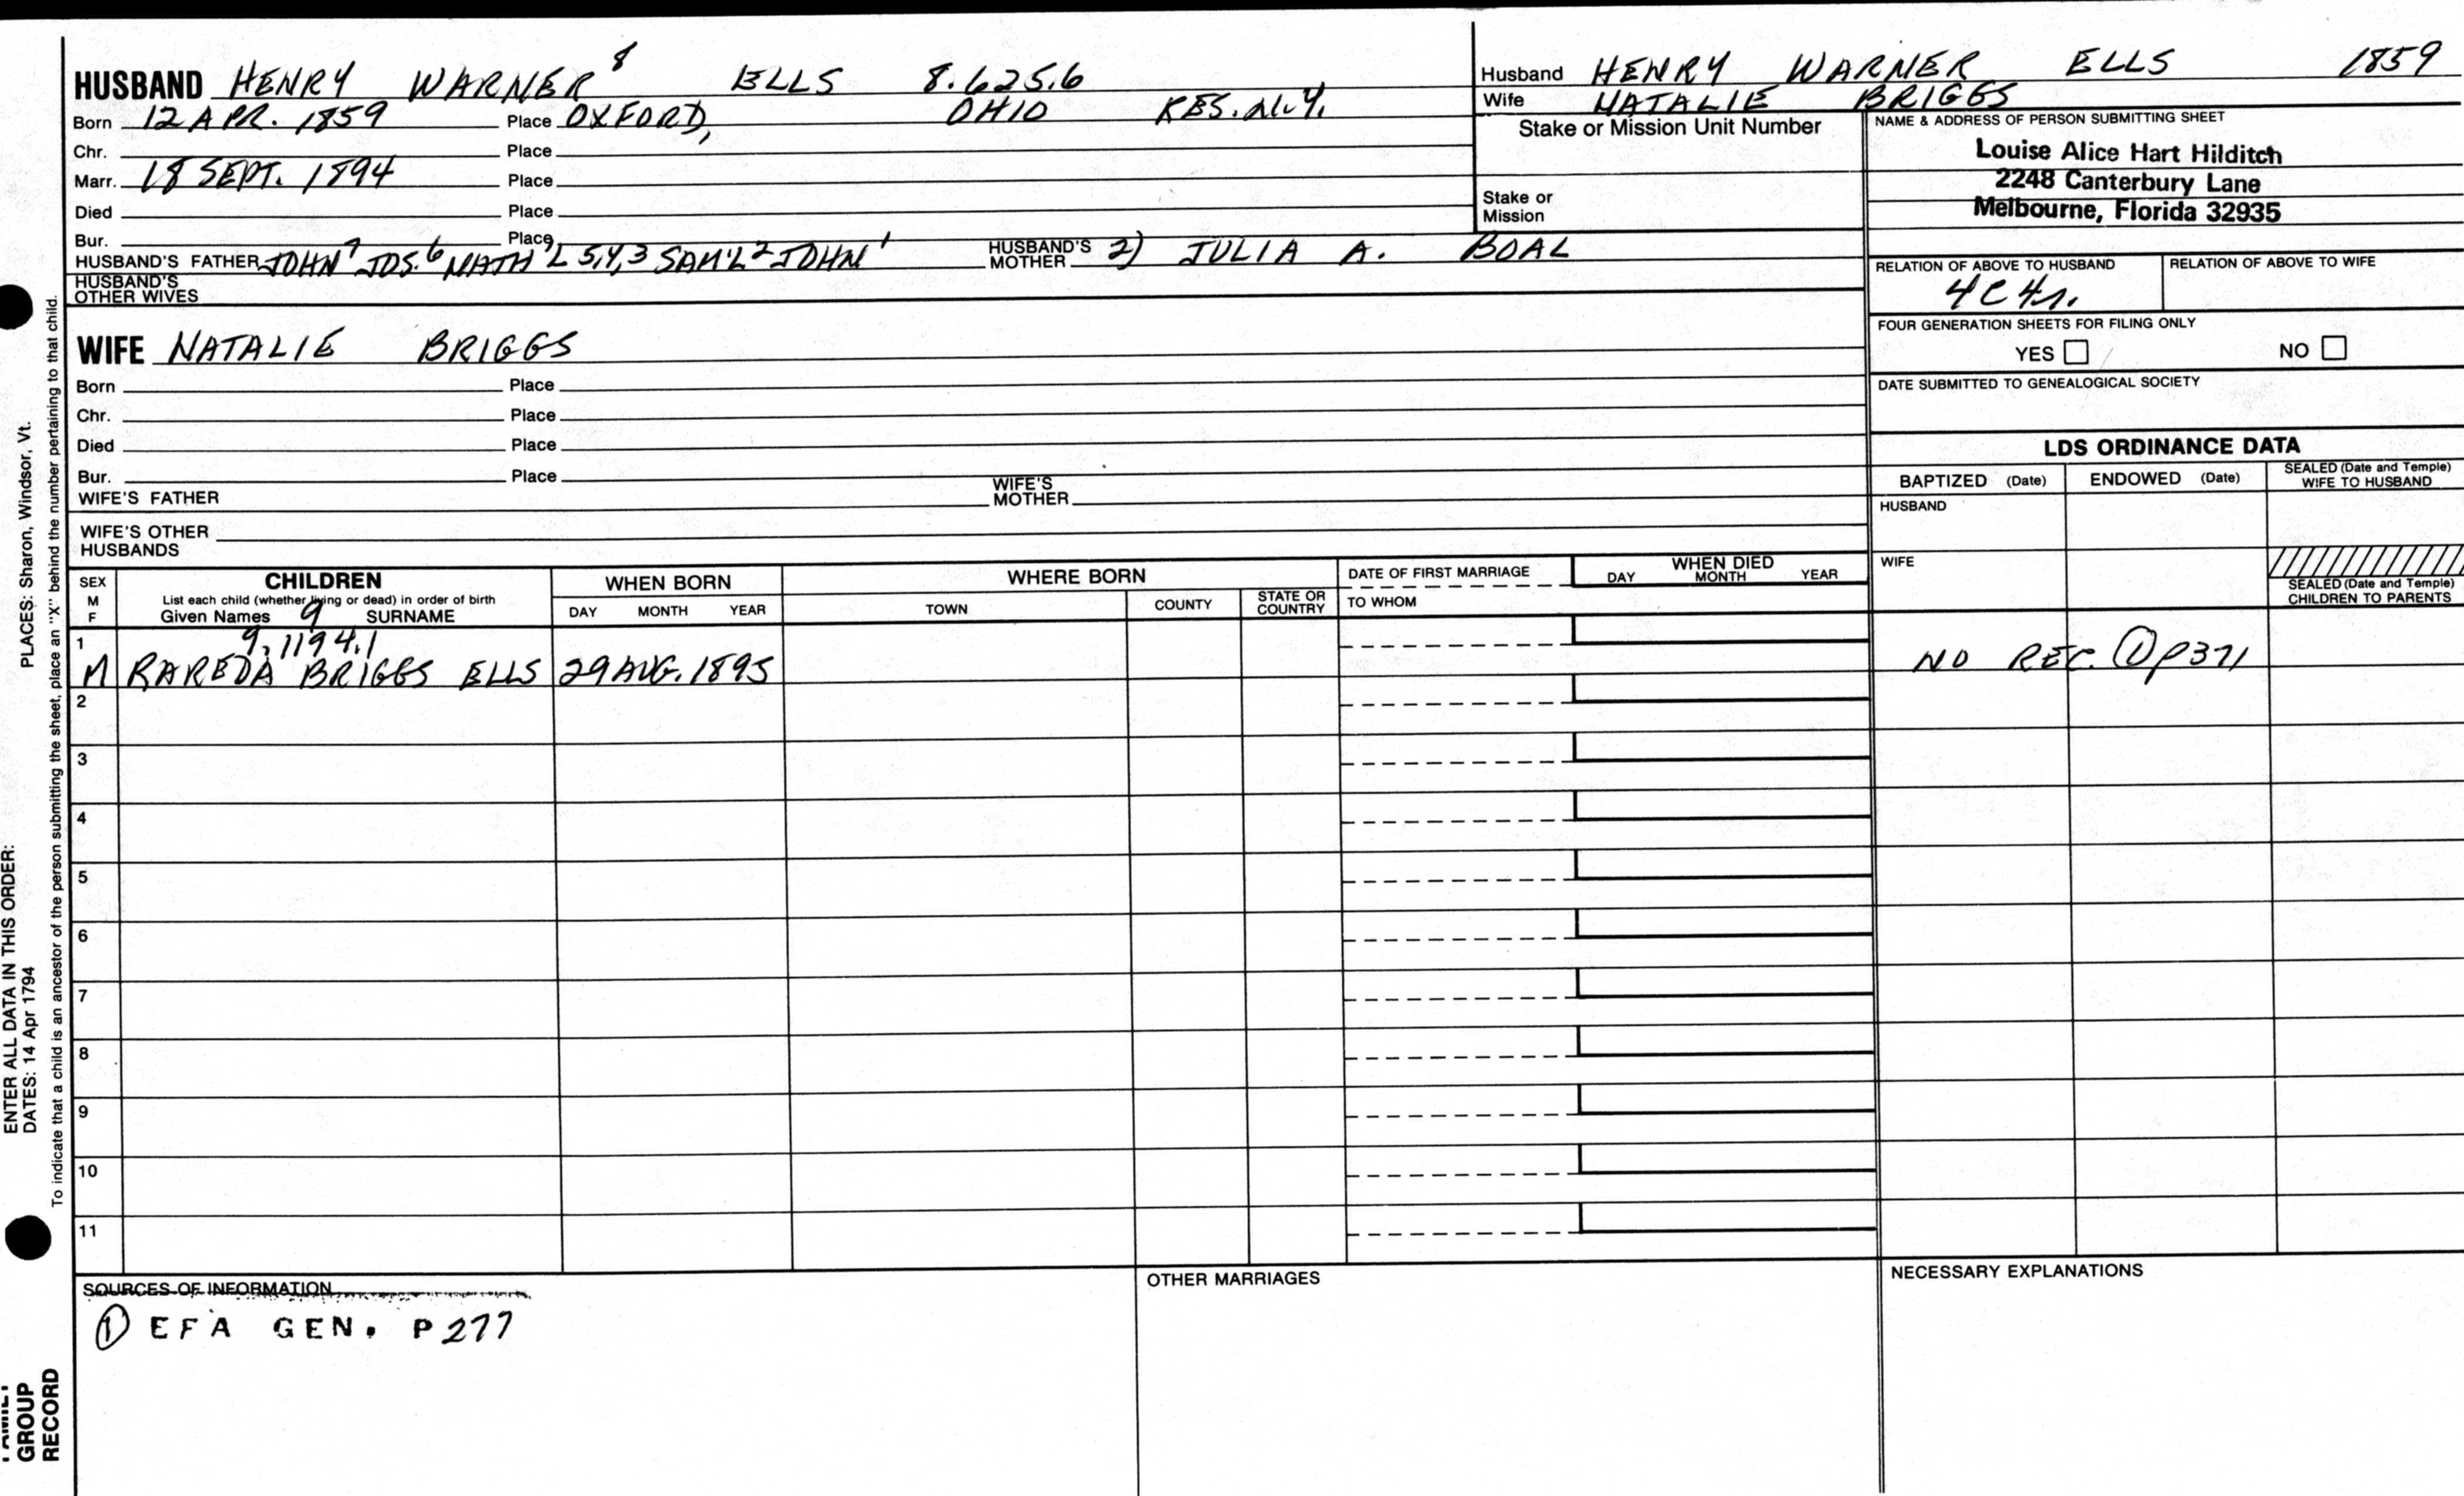 HUSBAND HENRY WARNER 8 ELLS 8.625.6
Born 12 APR. 1859 Place OXFORD, OHIO RES. N.Y.
Chr. Place
Marr. 18 SEPT. 1894 Place
Died Place
Bur. Place
HUSBAND'S FATHER JOHN 7 JOS. 6 NATH'L 5,4,3 SAM'L 2 JOHN 1 HUSBAND'S MOTHER 2) JULIA A. BOAL
HUSBAND'S OTHER WIVES
Husband HENRY WARNER ELLS 1859
Wife NATALIE BRIGGS
Stake or Mission Unit Number
Stake or
Mission
NAME & ADDRESS OF PERSON SUBMITTING SHEET
Louise Alice Hart Hilditch
2248 Canterbury Lane
Melbourne, Florida 32935
RELATION OF ABOVE TO HUSBAND RELATION OF ABOVE TO WIFE
4C4r.
FOUR GENERATION SHEETS FOR FILING ONLY
YES NO
DATE SUBMITTED TO GENEALOGICAL SOCIETY
WIFE NATALIE BRIGGS
Born Place
Chr. Place
Died Place
Bur. Place
WIFE'S FATHER WIFE'S MOTHER
WIFE'S OTHER
HUSBANDS
LDS ORDINANCE DATA
BAPTIZED (Date) ENDOWED (Date) SEALED (Date and Temple) WIFE TO HUSBAND
HUSBAND
WIFE
SEALED (Date and Temple)
CHILDREN TO PARENTS
SEX M F
CHILDREN
List each child (whether living or dead) in order of birth
Given Names 9 SURNAME
WHEN BORN
DAY MONTH YEAR
WHERE BORN
TOWN COUNTY STATE OR COUNTRY
DATE OF FIRST MARRIAGE
TO WHOM
WHEN DIED
DAY MONTH YEAR
1 9.1194.1
M RAREDA BRIGGS ELLS 29 AUG. 1895 NO REC. ① P371
2
3
4
5
6
7
8
9
10
11
SOURCES OF INFORMATION
① EFA GEN. P277
OTHER MARRIAGES
NECESSARY EXPLANATIONS
ENTER ALL DATA IN THIS ORDER:
DATES: 14 Apr 1794 PLACES: Sharon, Windsor, Vt.
To indicate that a child is an ancestor of the person submitting the sheet, place an "X" behind the number pertaining to that child.
GROUP
RECORD